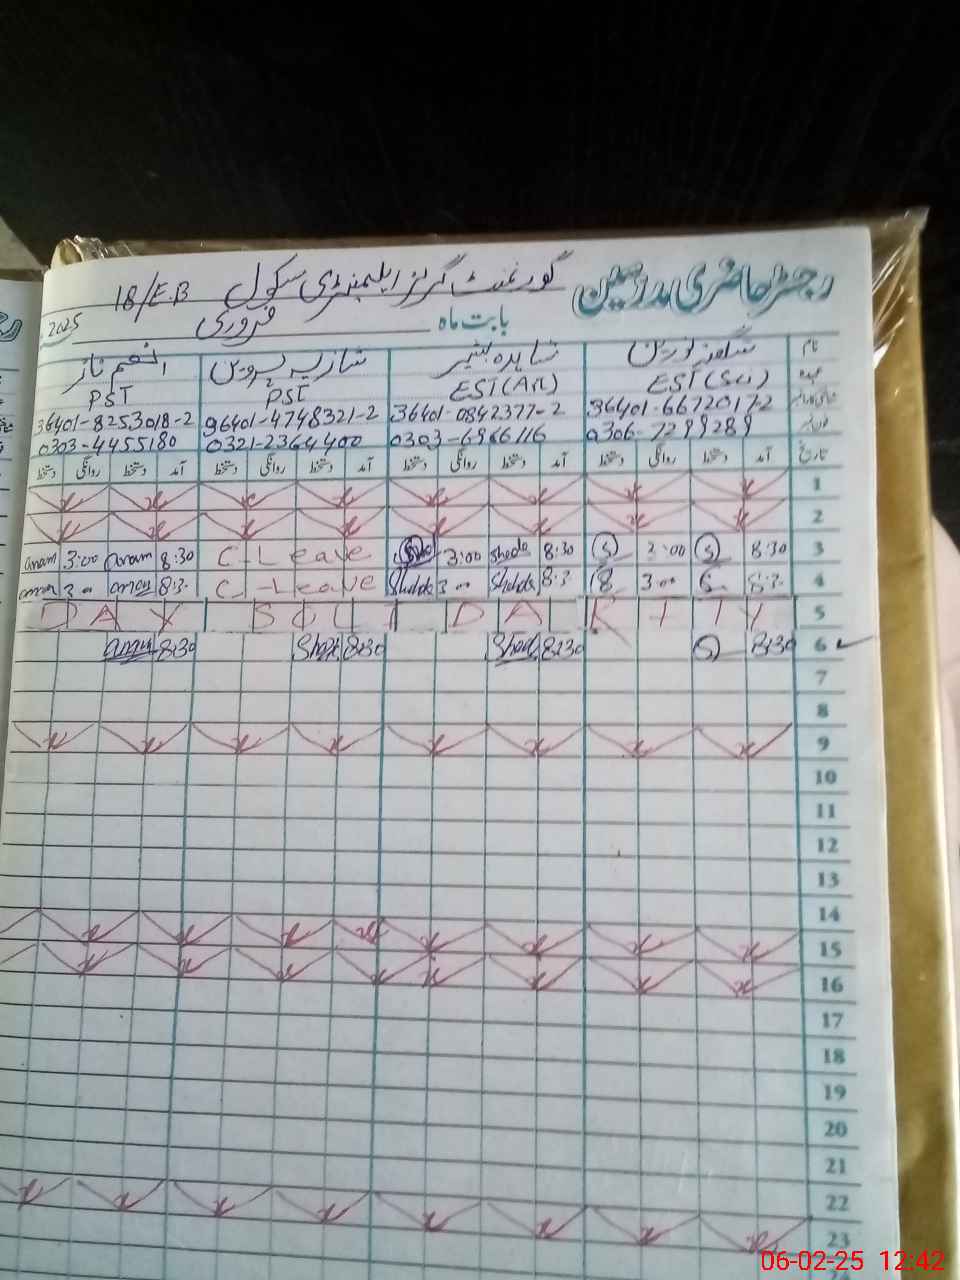 رجسٹر حاضری مدرسین گورنمنٹ گرلز ایلیمنٹری سکول 18/E.B
بابت ماہ فروری 2025
نام شگفتہ نورین شاہدہ بشیر شازیہ پروین انعم ناز
عہدہ EST (Sci) EST (Art) PST PST
36401-66720172 36401-0842377-2 36401-4748321-2 36401-8253018-2
0306-7299289 0303-6966116 0321-2364400 0303-4455180
تاریخ آمد دستخط روانگی دستخط آمد دستخط روانگی دستخط آمد دستخط روانگی دستخط آمد دستخط روانگی دستخط
1
2
3 8:30 S 3:00 S 8:30 Sheda 3:00 C-Leave 8:30 anam 3:00 anam
4 8:30 S 3:00 S 8:30 Sheda 3:00 Sheda C-Leave 8:30 anam 3:00 anam
5 DAY SOLIDARITY
6 8:30 S 8:30 Shed 8:30 Shaz 8:30 anam
7
8
9
10
11
12
13
14
15
16
17
18
19
20
21
22
23
06-02-25 12:42